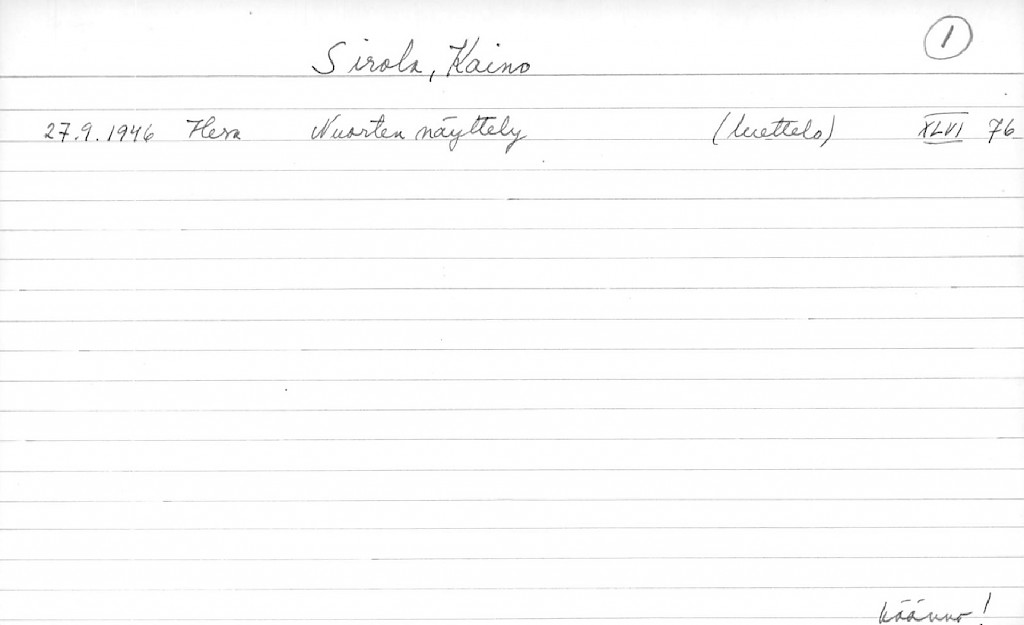 1
Sirola, Kaino
27.9.1946 Hesa Nuorten näyttely (luettelo) XLVI 76
käännö!